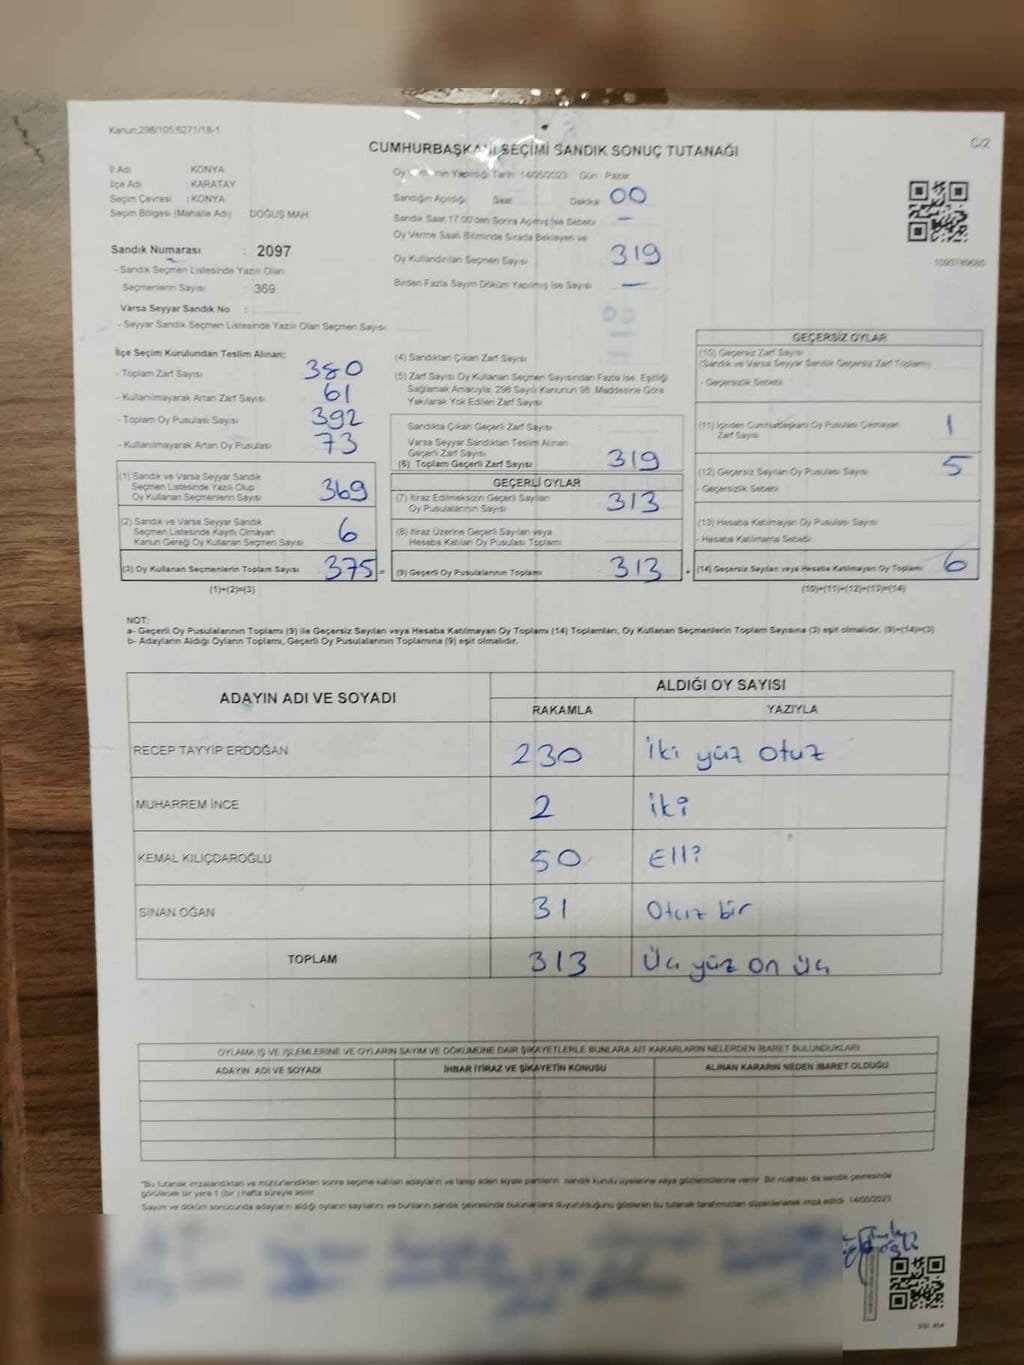 Kanun;298/105;6271/18-1
C/2
CUMHURBAŞKANI SEÇİMİ SANDIK SONUÇ TUTANAĞI
İl Adı : KONYA
İlçe Adı : KARATAY
Seçim Çevresi : KONYA
Seçim Bölgesi (Mahalle Adı) DOĞUŞ MAH.
Oy Tarih: 14/05/2023 Gün : Pazar
Sandığın Açıldığı Saat Dakika 00
Sandık Saat 17:00'den Sonra Açılmış İse Sebebi –
Oy Verme Saati Bitiminde Sırada Bekleyen ve
Oy Kullandırılan Seçmen Sayısı 319
Birden Fazla Sayım Döküm Yapılmış İse Sayısı –
Sandık Numarası : 2097
- Sandık Seçmen Listesinde Yazılı Olan
Seçmenlerin Sayısı : 369
Varsa Seyyar Sandık No :
- Seyyar Sandık Seçmen Listesinde Yazılı Olan Seçmen Sayısı
İlçe Seçim Kurulundan Teslim Alınan;
- Toplam Zarf Sayısı 380
- Kullanılmayarak Artan Zarf Sayısı 61
- Toplam Oy Pusulası Sayısı 392
- Kullanılmayarak Artan Oy Pusulası 73
(1) Sandık ve Varsa Seyyar Sandık
Seçmen Listesinde Yazılı Olup
Oy Kullanan Seçmenlerin Sayısı 369
(2) Sandık ve Varsa Seyyar Sandık
Seçmen Listesinde Kayıtlı Olmayan
Kanun Gereği Oy Kullanan Seçmen Sayısı 6
(3) Oy Kullanan Seçmenlerin Toplam Sayısı 375 =
(1)+(2)=(3)
00
(4) Sandıktan Çıkan Zarf Sayısı
(5) Zarf Sayısı Oy Kullanan Seçmen Sayısından Fazla İse, Eşitliği
Sağlamak Amacıyla; 298 Sayılı Kanunun 98. Maddesine Göre
Yakılarak Yok Edilen Zarf Sayısı
Sandıkta Çıkan Geçerli Zarf Sayısı
Varsa Seyyar Sandıktan Teslim Alınan
Geçerli Zarf Sayısı
(6) Toplam Geçerli Zarf Sayısı 319
GEÇERLİ OYLAR
(7) İtiraz Edilmeksizin Geçerli Sayılan
Oy Pusulalarının Sayısı 313
(8) İtiraz Üzerine Geçerli Sayılan veya
Hesaba Katılan Oy Pusulası Toplamı
(9) Geçerli Oy Pusulalarının Toplamı 313 +
GEÇERSİZ OYLAR
(10) Geçersiz Zarf Sayısı
(Sandık ve Varsa Seyyar Sandık Geçersiz Zarf Toplamı)
- Geçersizlik Sebebi
(11) İçinden Cumhurbaşkanı Oy Pusulası Çıkmayan
Zarf Sayısı 1
(12) Geçersiz Sayılan Oy Pusulası Sayısı 5
- Geçersizlik Sebebi
(13) Hesaba Katılmayan Oy Pusulası Sayısı
- Hesaba Katılmama Sebebi
(14) Geçersiz Sayılan veya Hesaba Katılmayan Oy Toplamı 6
(10)+(11)+(12)+(13)=(14)
NOT:
a- Geçerli Oy Pusulalarının Toplamı (9) ile Geçersiz Sayılan veya Hesaba Katılmayan Oy Toplamı (14) Toplamları, Oy Kullanan Seçmenlerin Toplam Sayısına (3) eşit olmalıdır. (9)+(14)=(3)
b- Adayların Aldığı Oyların Toplamı, Geçerli Oy Pusulalarının Toplamına (9) eşit olmalıdır.
ADAYIN ADI VE SOYADI ALDIĞI OY SAYISI
RAKAMLA YAZIYLA
RECEP TAYYİP ERDOĞAN 230 iki yüz otuz
MUHARREM İNCE 2 iki
KEMAL KILIÇDAROĞLU 50 Elli
SİNAN OĞAN 31 Otuz bir
TOPLAM 313 Üç yüz on üç
OYLAMA İŞ VE İŞLEMLERİNE VE OYLARIN SAYIM VE DÖKÜMÜNE DAİR ŞİKAYETLERLE BUNLARA AİT KARARLARIN NELERDEN İBARET BULUNDUKLARI
ADAYIN ADI VE SOYADI İHBAR İTİRAZ VE ŞİKAYETİN KONUSU ALINAN KARARIN NEDEN İBARET OLDUĞU
"Bu tutanak imzalandıktan ve mühürlendikten sonra seçime katılan adayların ve talep eden siyasi partilerin sandık kurulu üyelerine veya gözlemcilerine verilir. Bir nüshası da sandık çevresinde
görülecek bir yere 1 (bir) hafta süreyle asılır.
Sayım ve döküm sonucunda adayların aldığı oyların sayılarını ve bunların sandık çevresinde bulunanlara duyurulduğunu gösteren bu tutanak tarafımızdan düzenlenerek imza edildi. 14/05/2023